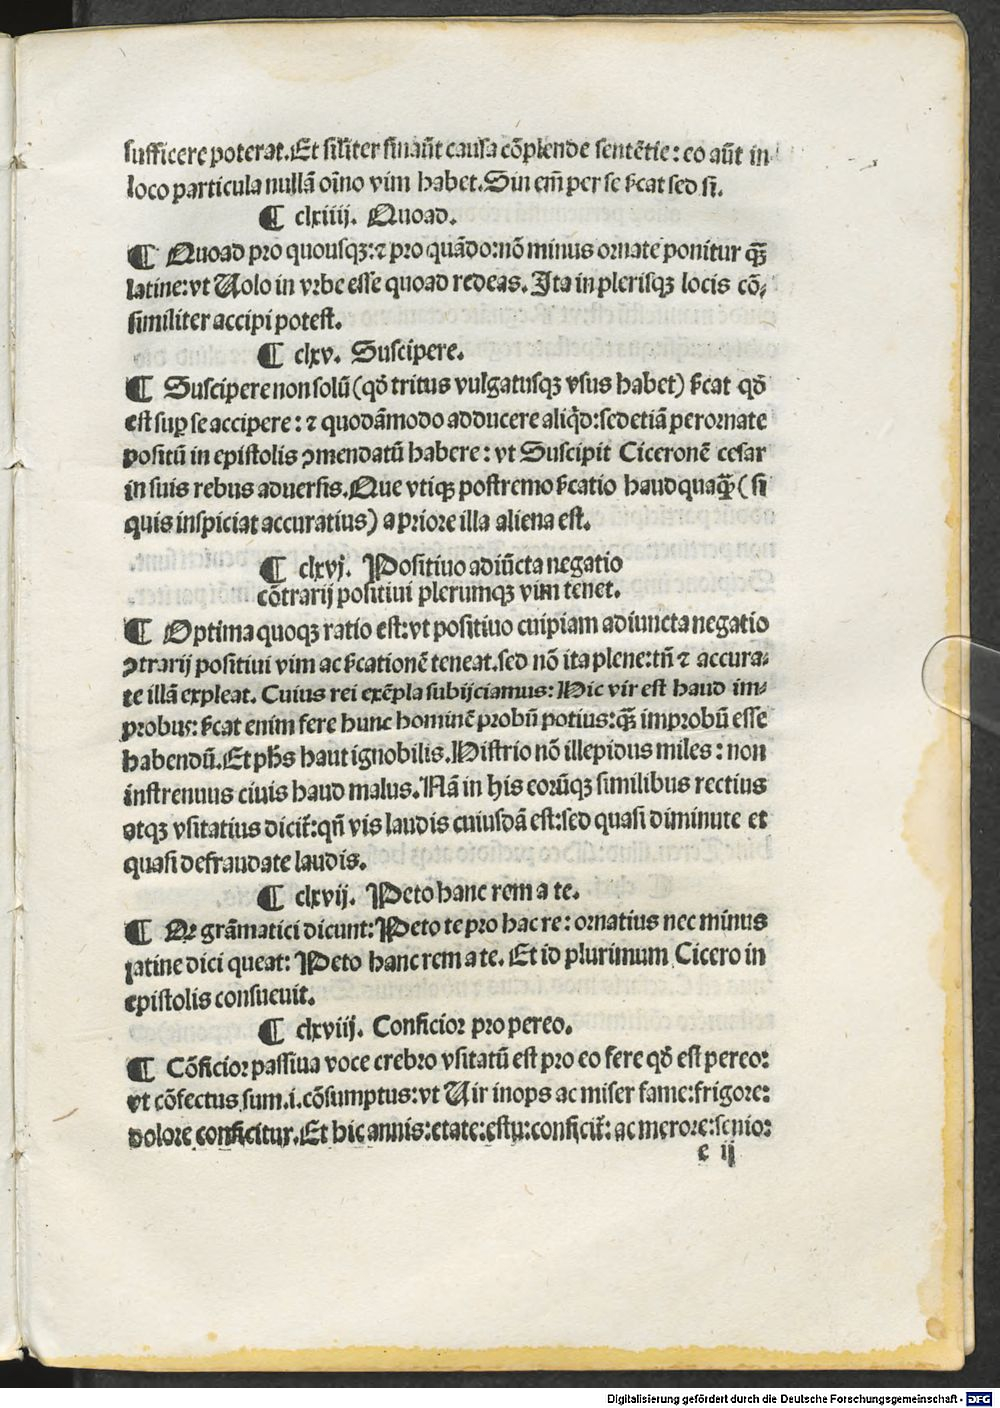 sufficere poterat. Et sil̃iter sin aũt causa cõplende sentẽtie: eo aũt in
loco particula nullã oĩno vim habet. Sin em̃ per se ſ̃cat sed si.
¶ clxiiij. Quoad.
¶ Quoad pro quousqꝫ: ⁊ pro quãdo: nõ minus ornate ponitur q̃ꝫ
latine: vt Uolo in vrbe esse quoad redeas. Ita in plerisqꝫ locis cõ⸗
similiter accipi potest.
¶ clxv. Suscipere.
¶ Suscipere non solũ (qď tritus vulgatusqꝫ vsus habet) ſ̃cat qď
est suꝑ se accipere: ⁊ quodãmodo adducere aliq̇d: sed etiã perornate
positũ in epistolis ꝯmendatũ habere: vt Suscipit Ciceronẽ cesar
in suis rebus aduersis. Que vtiqꝫ postremo ſ̃catio haudquaq̃ꝫ (si
quis inspiciat accuratius) a priore illa aliena est.
¶ clxvj. Positiuo adiũcta negatio
cõtrarij positiui plerumqꝫ vim tenet.
¶ Optima quoqꝫ ratio est: vt positiuo cuipiam adiuncta negatio
ꝯtrarij positiui vim ac ſ̃cationẽ teneat. sed nõ ita plene: tñ ⁊ accura⸗
te illã expleat. Cuius rei exẽpla subijciamus: Hic vir est haud im⸗
probus: ſ̃cat enim fere hunc hominẽ probũ potius: q̃ꝫ improbũ esse
habendũ. Et ph̃s haut ignobilis. Histrio nõ illepidus miles: non
instrenuus ciuis haud malus. Nã in his eorũqꝫ similibus rectius
atqꝫ vsitatius dicit̃: qñ vis laudis cuiusdã est: sed quasi diminute et
quasi defraudate laudis.
¶ clxvij. Peto hanc rem a te.
¶ Qẽ grãmatici dicunt: Peto te pro hac re: ornatius nec minus
latine dici queat: Peto hanc rem a te. Et id plurimum Cicero in
epistolis consueuit.
¶ clxviij. Conficior pro pereo.
¶ Cõficior passiua voce crebro vsitatũ est pro eo fere qď est pereo:
vt cõfectus sum .i. cõsumptus: vt Uir inops ac miser fame: frigore:
dolore conficitur. Et hic annis: etate: estu: conficit̃: ac merore: senio:
e ij
Digitalisierung gefördert durch die Deutsche Forschungsgemeinschaft - DFG